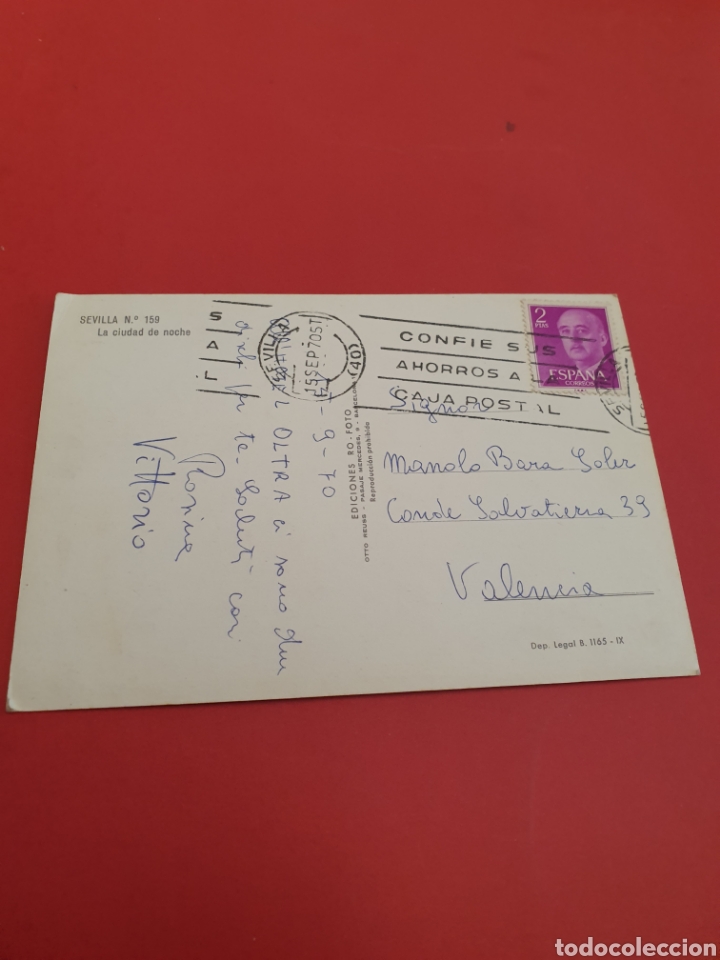 SEVILLA N.º 159
La ciudad de noche
S
A
L
SEVILLA
15 SEP 70 5T
(40)
CONFIE SUS
AHORROS A
CAJA POSTAL
2
PTAS
ESPAÑA
CORREOS
-9-70
OLTRA ci sono due
te. Saluti cari
Rosina
Vittorio
EDICIONES RO-FOTO
OTTO REUSS - PASAJE MERCEDES, 9 - BARCELONA
Reproducción prohibida
Signor
Manolo Bara Soler
Conde Salvatierra 39
Valencia
Dep. Legal B. 1165 - IX
todocoleccion